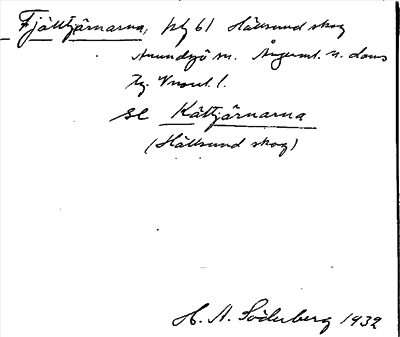 Fjältjärnarna, 61 Hällsund skog
Anundsjö sn. Ångerml. n. doms
se Kåltjärnarna
(Hällsund skog)
H. A. Söderberg 1932